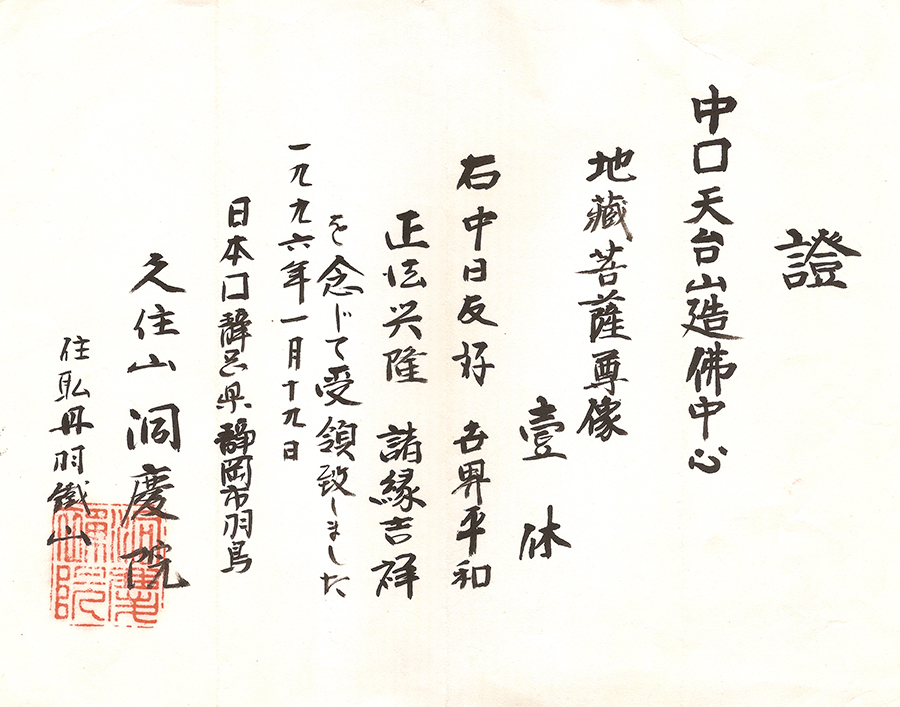 證
中口天台山造佛中心
地藏菩薩尊像
壹休
右中日友好 世界平和
正法兴隆 諸縁吉祥
を念じて受領致しました
一九九六年一月十九日
日本口静岡県静岡市羽鳥
久住山洞慶院
住職丹羽鐵山
洞慶禪院